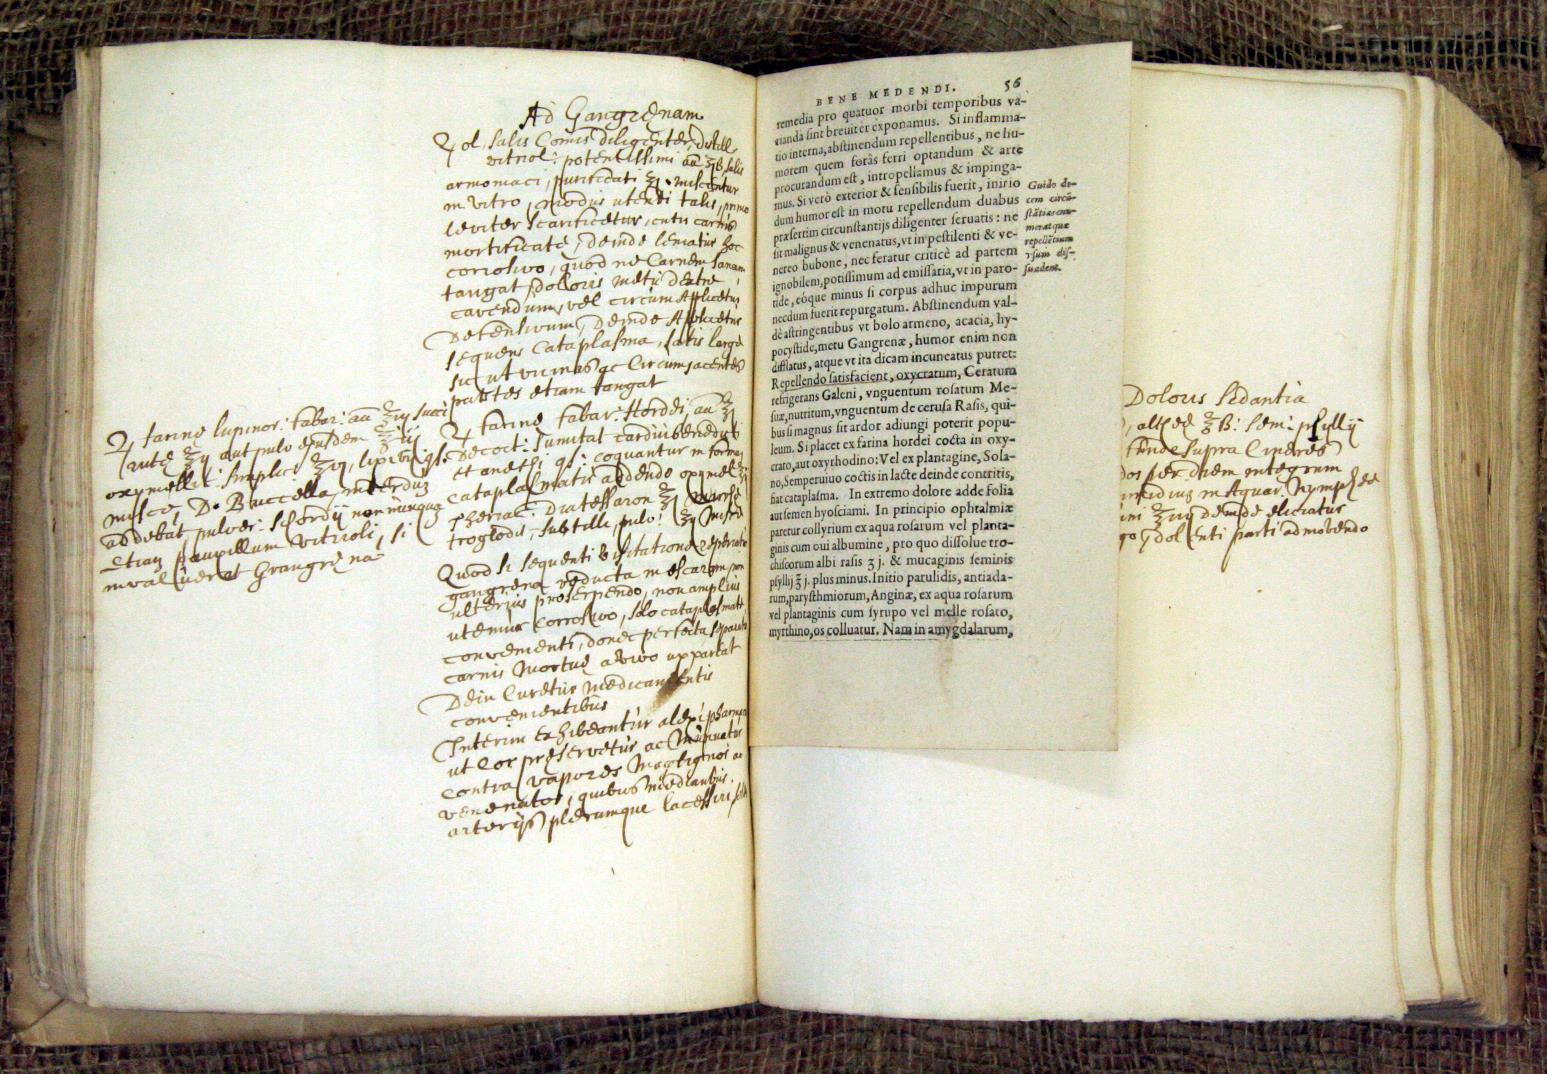 Ad Gangrenam
ol. Salis Comis diligenter destill
vitriol: potentissimi aa ʒß salis
armoniaci, purificati ʒj. misceantur
in vitro, modus utendi talis, primo
leviter scarificetur, cutis carnis
mortificatę, deinde leniatur hoc
corrosivo, quod ne Carnem sanam
tangat doloris metu dextre
cavendum, vel circum Applicetur
Defensivum, Deinde Applicetur
sequens Cataplasma, satis large
sic ut vicinas ac Circumjacentes
partes etiam tangat
farinę fabar: Hordei, aa ʒj
Decoct: sumitat cardui benedict
et anethi qs: coquantur in formam
cataplasmatis addendo oxymel
theriac: Diatessaron
troglodit, subtiliss. pulv: ʒij Misce
Quod si sequenti visitatione
gangrena reducta in escaram, non
ulterius proserpendo, non amplius
utemur Corrosivo, solo cataplasmate
convenienti, donec perfecta separatio
carnis mortuę a vivo appareat
Dein Curetur medicamentis
convenientibus
Interim Exhibeantur alexipharmaca
ut Cor preservetur ac Muniatur
contra vapores malignos ac
venenatos, quibus mediantibus
arterijs plerumque lacessiri
farinę lupinor: fabar: aa ʒiij succi
rutę ʒij aut pulv ejusdem
oxymellit: simplici
misce, D. Buccella interdum
addebat, pulver: scordij non nunquam
Etiam pauxillum vitrioli, si
invaluerat Grangręna
BENE MEDENDI. 56
remedia pro quatuor morbi temporibus va-
rianda sint breuiter exponamus. Si inflamma-
tio interna, abstinendum repellentibus, ne hu-
morem quem foràs ferri optandum & arte
procurandum est, intropellamus & impinga-
mus. Si verò exterior & sensibilis fuerit, initio
dum humor est in motu repellendum duabus
præsertim circunstantijs diligenter seruatis: ne
sit malignus & venenatus, vt in pestilenti & ve-
nereo bubone, nec feratur criticè ad partem
ignobilem, potissimum ad emissaria, vt in paro-
tide, eóque minus si corpus adhuc impurum
necdum fuerit repurgatum. Abstinendum val-
dè astringentibus vt bolo armeno, acacia, hy-
pocystide, metu Gangrenæ, humor enim non
difflatus, atque vt ita dicam incuneatus putret:
Repellendo satisfacient, oxycratum, Ceratum
refrigerans Galeni, vnguentum rosatum Me-
suæ, nutritum, vnguentum de cerusa Rasis, qui-
bus si magnus sit ardor adiungi poterit popu-
leum. Si placet ex farina hordei cocta in oxy-
crato, aut oxyrhodino: Vel ex plantagine, Sola-
no, Semperuiuo coctis in lacte deinde contritis,
fiat cataplasma. In extremo dolore adde folia
aut semen hyosciami. In principio ophtalmiæ
paretur collyrium ex aqua rosarum vel planta-
ginis cum oui albumine, pro quo dissolue tro-
chiscorum albi rasis ʒ j. & mucaginis seminis
psyllij ʒ j. plus minus. Initio parulidis, antiada-
rum, parysthmiorum, Anginæ, ex aqua rosarum
vel plantaginis cum syrupo vel melle rosato,
myrthino, os colluatur. Nam in amygdalarum,
Guido de-
cem circũ-
stãtias enu-
merat quæ
repellẽtium
vsum dis-
suadent.
Doloris Sedantia
altheę ʒß: sem: psyllij
supra Cineres
per diem integrum
in Aquar. Nympheę
deinde eliciatur
dolenti parti admovendo